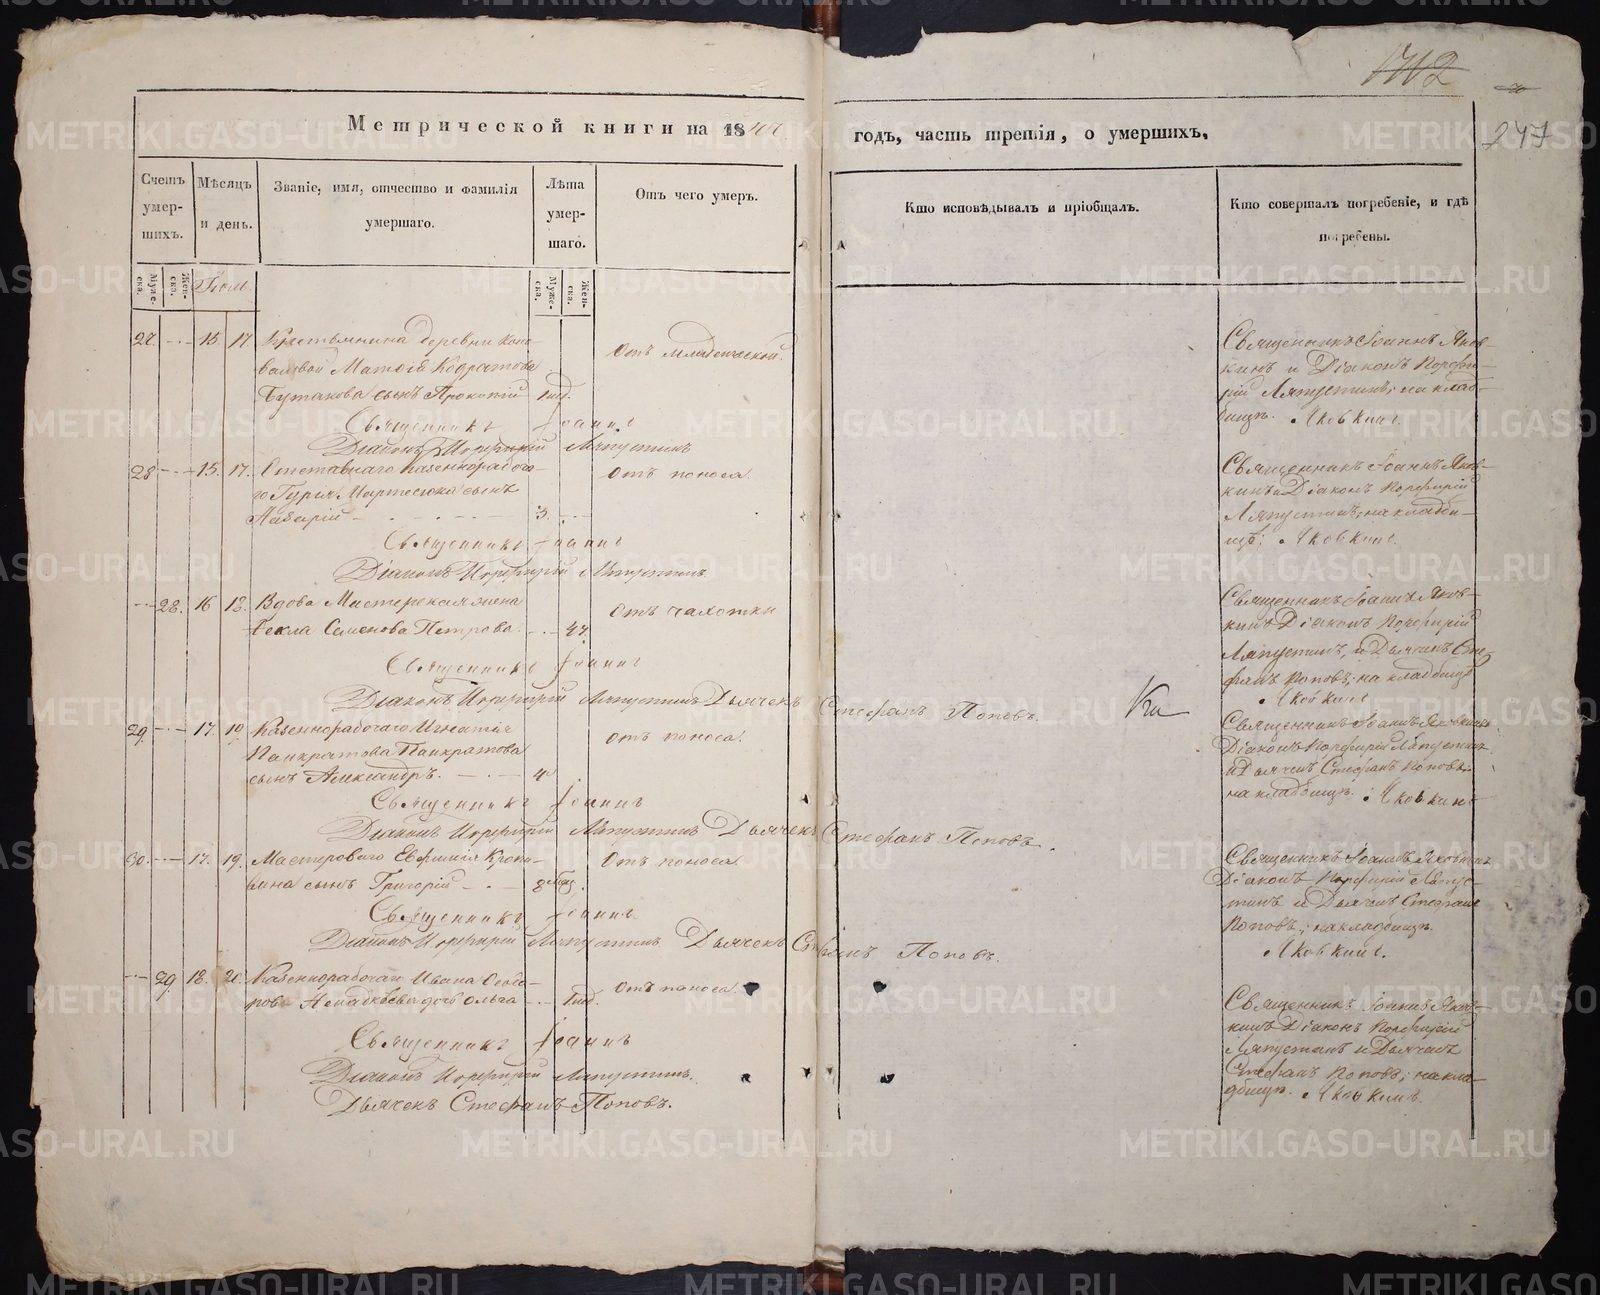 1712
247
Метрической книги на 18
годъ, часть третія, о умершихъ,
Счетъ умер-шихъ.
Мѣсяцъ и день.
Званіе, имя, отчество и фамилія умершаго.
Лѣта умер-шаго.
Отъ чего умеръ.
Кто исповѣдывалъ и пріобщалъ.
Кто совершалъ погребеніе, и гдѣ погребены.
Муже-ска.
Жен-ска.
Іюль
Муже-ска.
Жен-ска.
27 15 17 Крестьянина деревни
Матѳія Кодратова
Бутакова сынъ Прокопій
Отъ младенческой.
Священникъ Іоаннъ Яков-
кинъ и Діаконъ Порфи-
рій Ляпустинъ; на клад-
бищѣ. Яковкинъ.
Священникъ Іоаннъ
Діаконъ Порфирій Ляпустинъ
28 15. 17. Отставнаго казеннорабоча-
го Гурья сынъ
Назарій 3.
Отъ поноса.
Священникъ Іоаннъ Яков-
кинъ и Діаконъ Порфирій
Ляпустинъ; на кладби-
щѣ; Яковкинъ.
Священникъ Іоаннъ
Діаконъ Порфирій Ляпустинъ
28. 16 18. Вдова Мастерская жена
Ѳекла Семенова Петрова 47.
Отъ чахотки
Священникъ Іоаннъ Яков-
кинъ Діаконъ Порфирій
Ляпустинъ, и Дьячекъ Сте-
фанъ Поповъ; на кладбищѣ
Яковкинъ
Священникъ Іоаннъ
Діаконъ Порфирій Ляпустинъ Дьячекъ Стефанъ Поповъ.
29. 17. 19 Казеннорабочаго Игнатія
Панкратова Панкратова
сынъ Александръ. 4
Отъ поноса.
Священникъ Іоаннъ Яковкинъ
Діаконъ Порфирій Ляпустинъ
и Дьячекъ Стефанъ Поповъ;
на кладбищѣ. Яковкинъ
Священникъ Іоаннъ
Діаконъ Порфирій Ляпустинъ Дьячекъ Стефанъ Поповъ.
30. 17. 19. Мастероваго Евфимія Кропи-
вина сынъ Григорій 8 мѣс.
Отъ поноса.
Священникъ Іоаннъ Яковкинъ
Діаконъ Порфирій Ляпус-
тинъ и Дьячекъ Стефанъ
Поповъ; на кладбищѣ.
Яковкинъ.
Священникъ Іоаннъ
Діаконъ Порфирій Ляпустинъ Дьячекъ Стефанъ Поповъ.
29 18. 20. Казеннорабочаго Ивана
дочь Ольга
Отъ поноса.
Священникъ Іоаннъ Яков-
кинъ Діаконъ Порфирій
Ляпустинъ и Дьячекъ
Стефанъ Поповъ; на кла-
дбищѣ. Яковкинъ.
Священникъ Іоаннъ
Діаконъ Порфирій Ляпустинъ.
Дьячекъ Стефанъ Поповъ.
METRIKI.GASO-URAL.RU